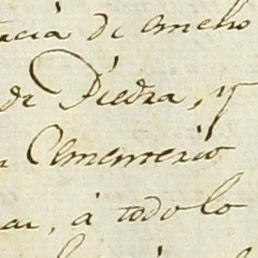 tacia de emeno
de Piedra, y
Cementerio
ar, à todo lo